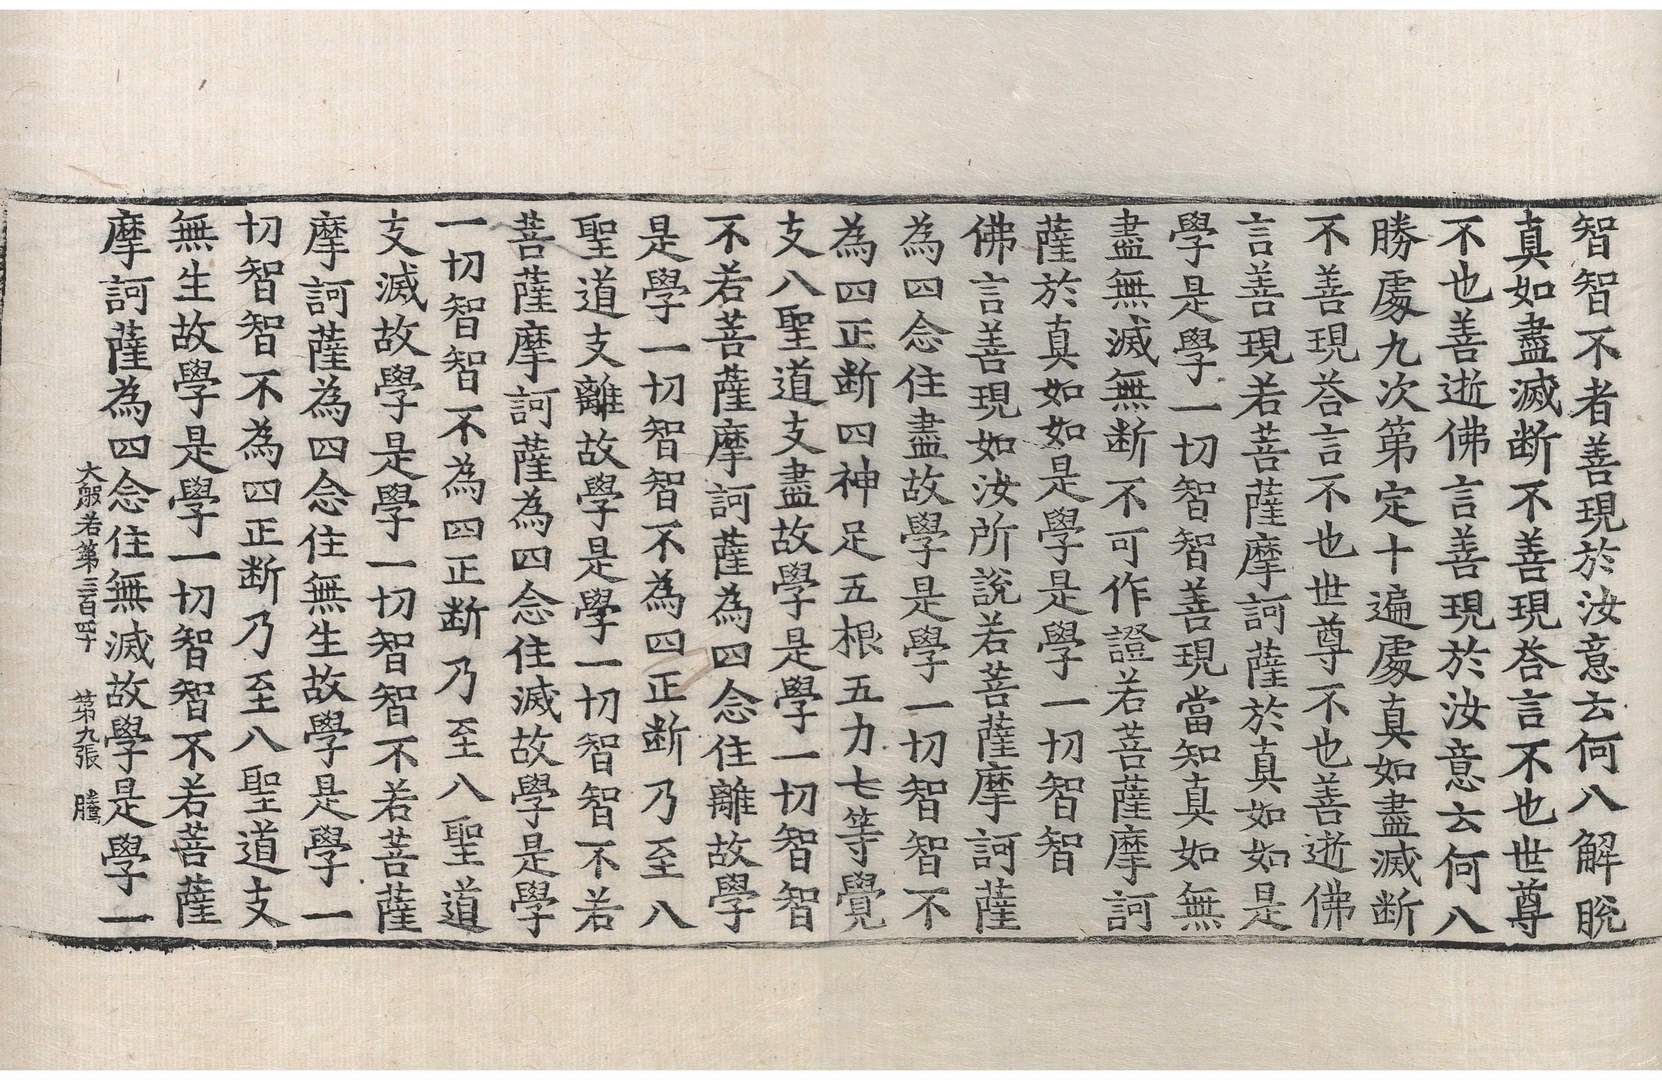 智智不者善現於汝意云何八解脫
真如盡滅断不善現荅言不也世尊
不也善逝佛言善現於汝意云何八
勝處九次第定十遍處真如盡滅断
不善現荅言不也世尊不也善逝佛
言善現若菩薩摩訶薩於真如如是
學是學一切智智善現當知真如無
盡無滅無断不可作證若菩薩摩訶
薩於真如如是學是學一切智智
佛言善現如汝所說若菩薩摩訶薩
為四念住盡故學是學一切智智不
為四正断四神足五根五力七等覺
支八聖道支盡故學是學一切智智
不若菩薩摩訶薩為四念住離故學
是學一切智智不為四正断乃至八
聖道支離故學是學一切智智不若
菩薩摩訶薩為四念住滅故學是學
一切智智不為四正断乃至八聖道
支滅故學是學一切智智不若菩薩
摩訶薩為四念住無生故學是學一
切智智不為四正断乃至八聖道支
無生故學是學一切智智不若菩薩
摩訶薩為四念住無滅故學是學一
大般若第三百四十 第九張 騰